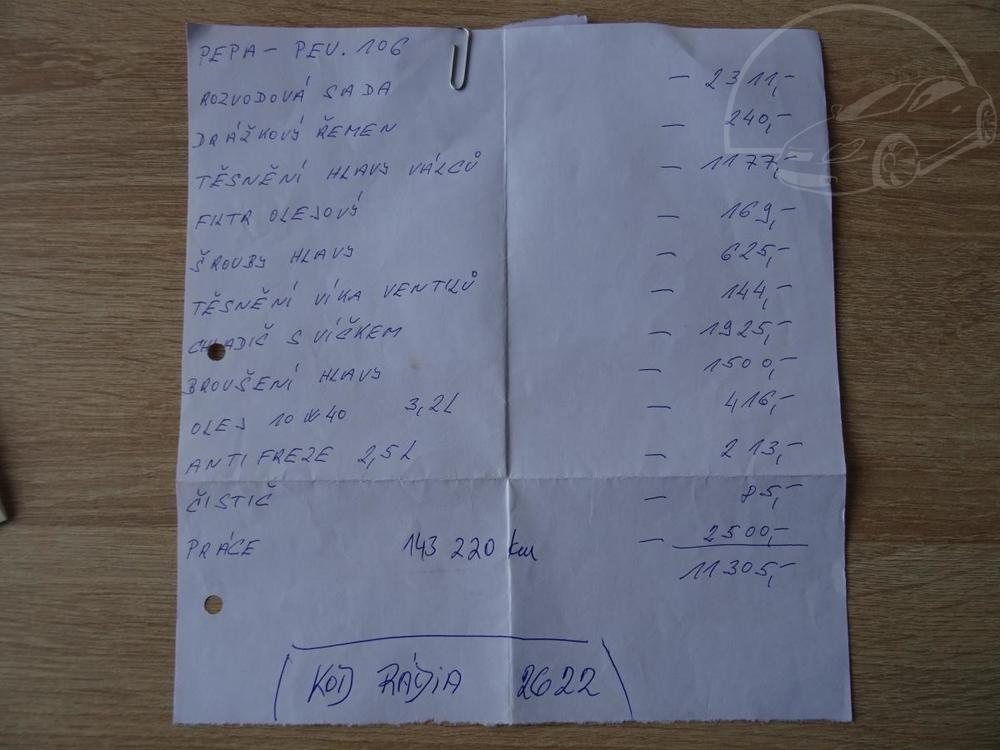 PEPA - PEU. 106
ROZVODOVÁ SADA - 2311,-
DRÁŽKOVÝ ŘEMEN - 240,-
TĚSNĚNÍ HLAVY VÁLCŮ - 1177,-
FILTR OLEJOVÝ - 169,-
ŠROUBY HLAVY - 625,-
TĚSNĚNÍ VÍKA VENTILŮ - 144,-
CHLADIČ S VÍČKEM - 1925,-
BROUŠENÍ HLAVY - 1500,-
OLEJ 10W40 3,2L - 416,-
ANTIFREZE 2,5L - 213,-
ČISTIČ - 85,-
PRÁCE 143 220 km - 2500,-
11305,-
KÓD RÁDIA 2622